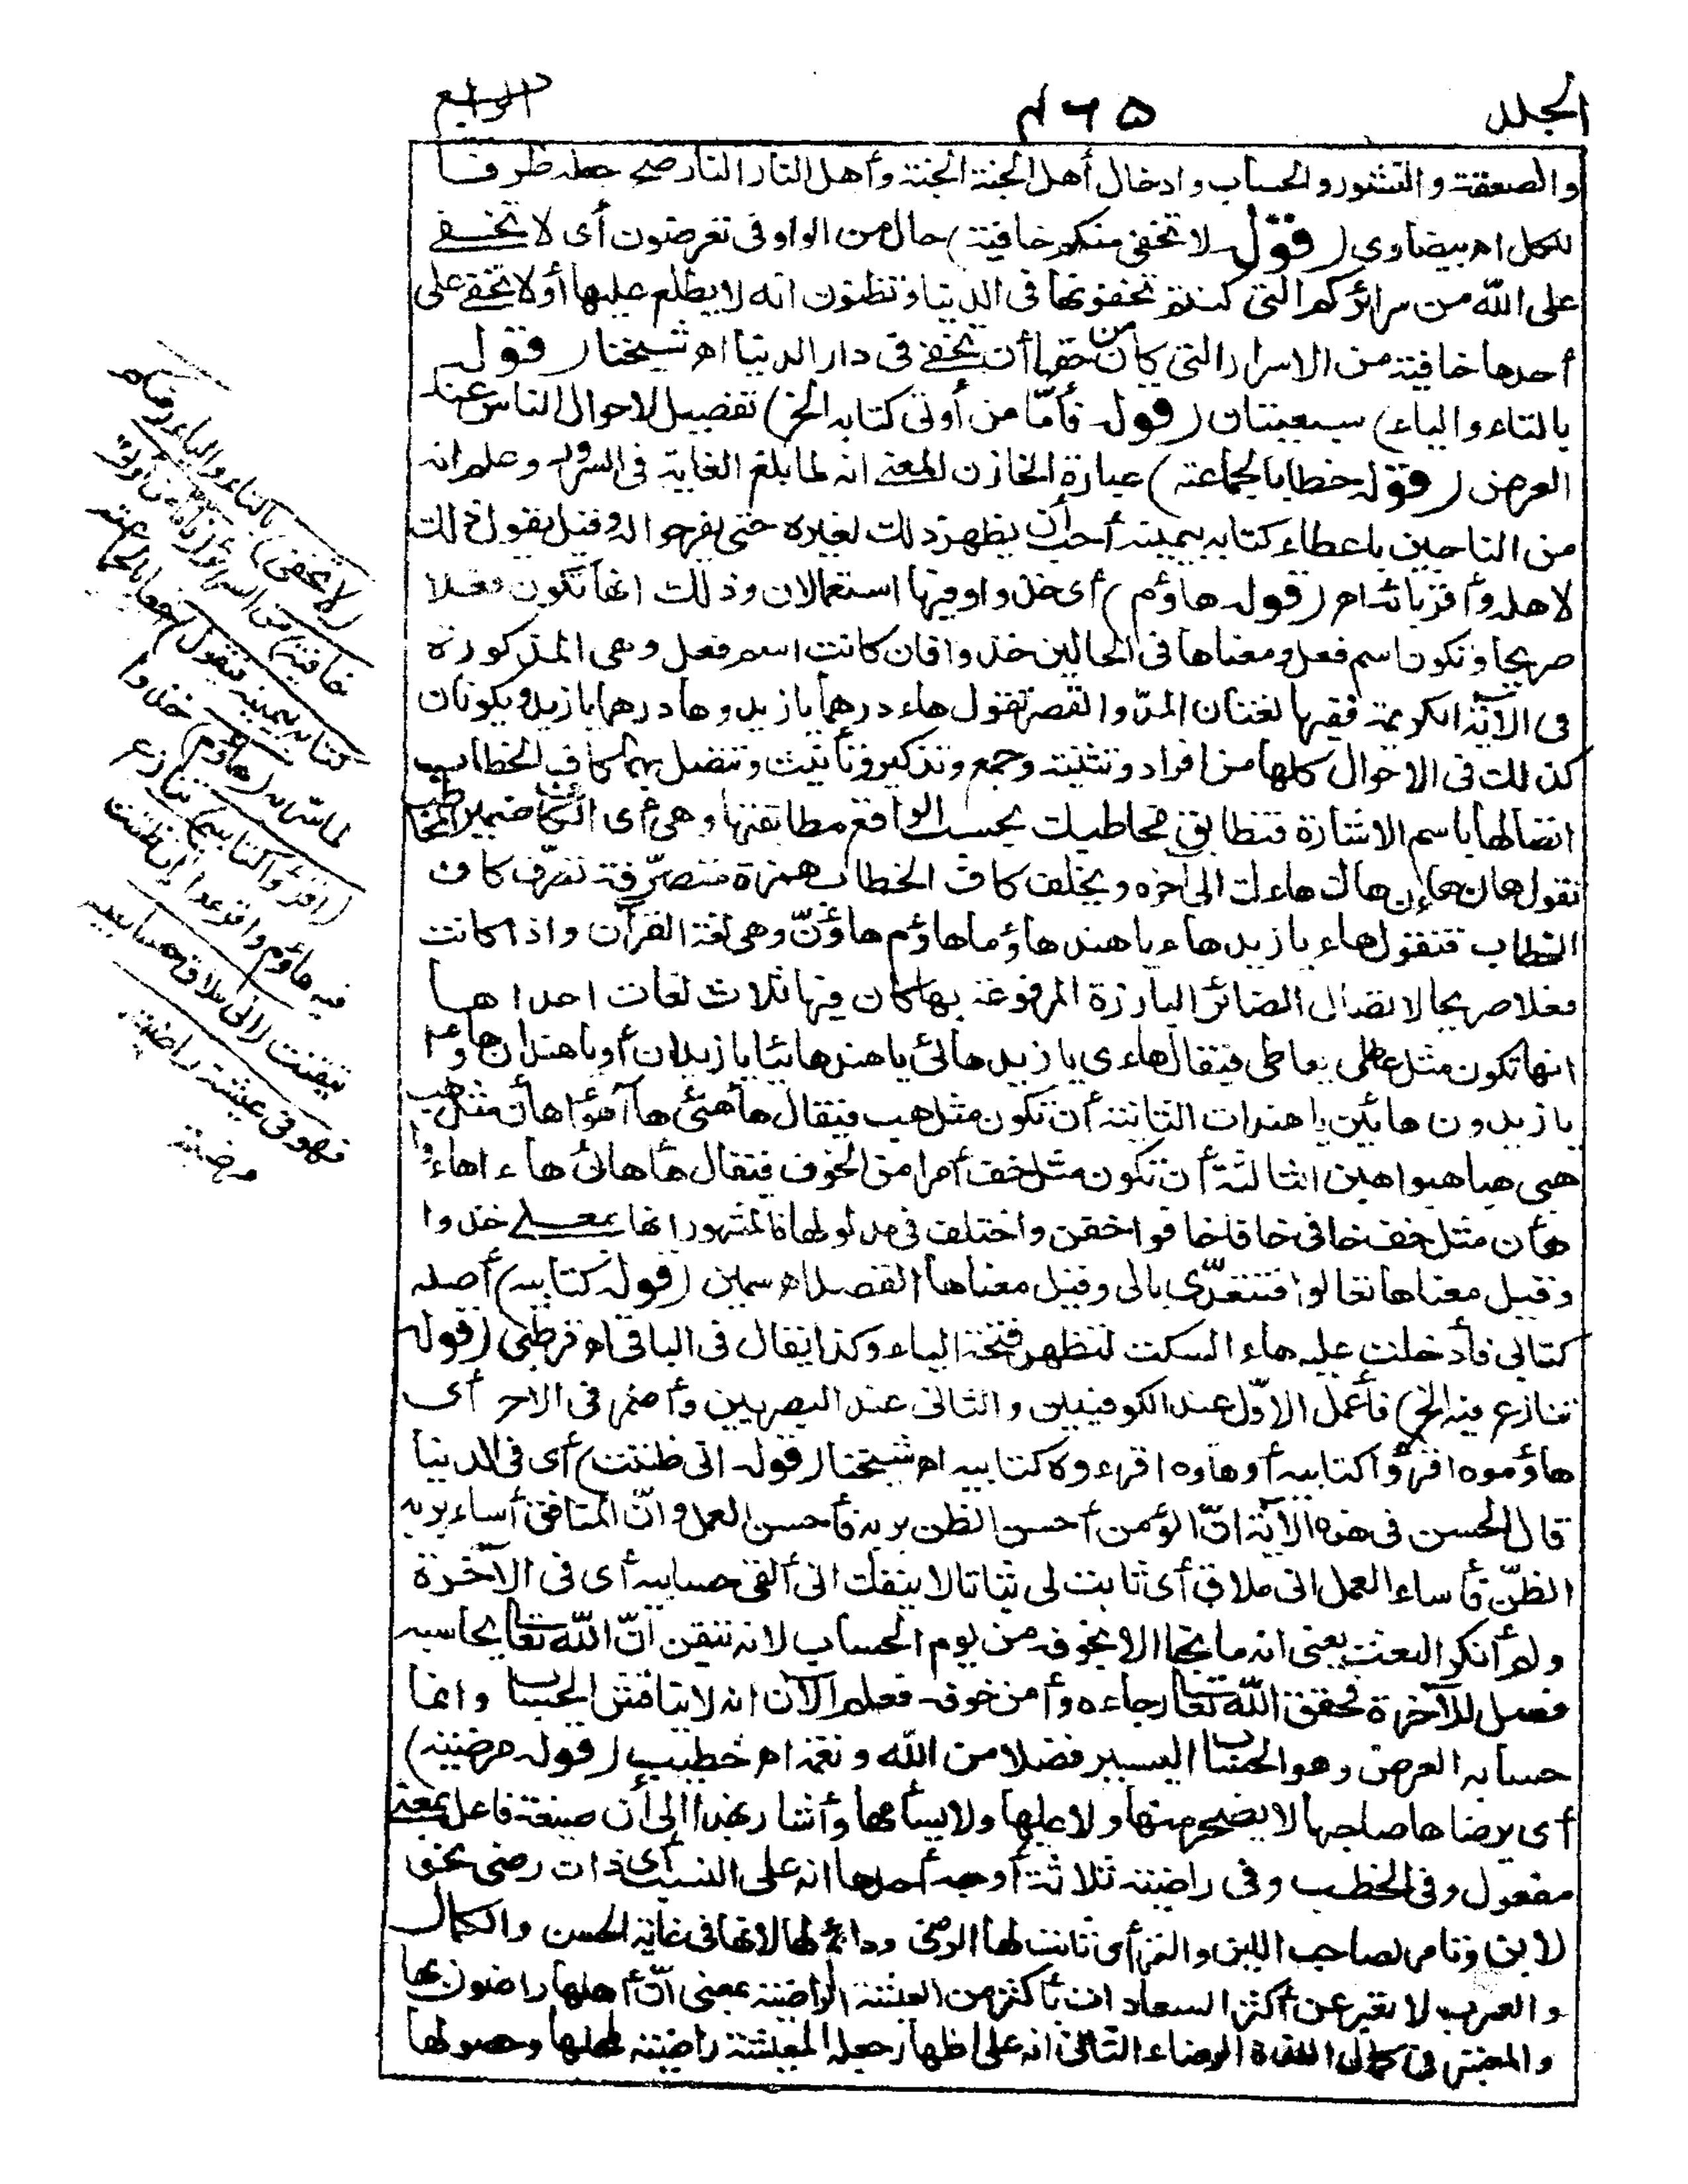 الجلد ٤٦٥ الرابع
والصعقة والنشور والحساب وادخال أهل الجنة الجنة وأهل النار النار صح جعله ظرفا
للكل اه بيضاوى (قوله لا تخفى منكم خافية) حال من الواو فى تعرضون أى لا تخفى
على الله من سرائركم التى كنتم تخفونها فى الدنيا وتظنون انه لا يطلع عليها أو لا تخفى على
أحدها خافية من الاسرار التى كان من حقها أن تخفى فى دار الدنيا اه شيخنا (قوله
بالتاء والياء) سبعيتان (قوله فأمّا من أوتى كتابه الخ) تفصيل لاحوال الناس عند
العرض (قوله خطابا لجماعته) عبارة الخازن المعنى انه لما بلغ الغاية فى السرور وعلم انه
من الناجين باعطاء كتابه بيمينه أحب أن يظهر ذلك لغيره حتى يفرحوا له وقيل يقول ذلك
لاهله وأقربائه اه (قوله هاؤم) أى خذوا وفيها استعمالان وذلك انها تكون فعلا
صريحا وتكون اسم فعل ومعناها فى الحالين خذوا فان كانت اسم فعل وهى المذكورة
فى الآية الكريمة ففيها لغتان المدّ والقصر تقول هاء درهما يا زيد وها درهما يا زيد ويكونان
كذلك فى الاحوال كلها من افراد وتثنية وجمع وتذكير وتأنيث وتتصل بهما كاف الخطاب
اتصالها باسم الاشارة فتطابق مخاطبك بحسب الواقع مطابقتها وهى أى الكاف ضمير المخاطب
تقول هاك هاءك الى آخره ويخلف كاف الخطاب همزة متصرّفة تصرّف كاف
الخطاب فتقول هاء يا زيد هاء يا هند هاؤما هاؤم هاؤنّ وهى لغة القرآن واذا كانت
فعلا صريحا لاتصال الضمائر البارزة المرفوعة بها كان فيها ثلاث لغات احداها
انها تكون مثل عاطى يعاطى فيقال هاءى يا زيد هائى يا هند هائيا يا زيدان أو يا هندان هاؤا
يا زيدون هائين يا هندات الثانية أن تكون مثل هب فيقال هأ هئى هآ هؤا هأن مثل هب
هبى هبا هبوا هبن الثالثة أن تكون مثل خف أمرا من الخوف فيقال هأ هائى هاءا هاءوا
هأن مثل خف خافى خافا خافوا خفن واختلف فى مدلولها فالمشهور انها بمعنى خذوا
وقيل معناها تعالوا فتتعدّى بالى وقيل معناها القصد اه سمين (قوله كتابيه) أصله
كتابى فأدخلت عليه هاء السكت لتظهر فتحة الياء وكذا يقال فى الباقى اه قرطبى (قوله
تنازع فيه الخ) فأعمل الاوّل عند الكوفيين والثانى عند البصريين وأضمر فى الاخر أى
هاؤموه اقرؤا كتابيه أو هاؤم اقرءوه كتابيه اه شيخنا (قوله انى ظننت) أى فى الدنيا
قال الحسن فى هذه الآية انّ المؤمن أحسن الظن بربه فأحسن العمل وانّ المنافق أساء بربه
الظنّ فأساء العمل انى ملاق أى ثابت لى ثباتا لا ينفك انى ألقى حسابيه أى فى الآخرة
ولم أنكر البعث يعنى انه ما نجا الا بخوفه من يوم الحساب لانه تيقن انّ الله تعالى يحاسبه
فعمل للآخرة فحقق الله تعالى رجاءه وأمن خوفه فعلم الآن انه لا يناقش الحساب وانما
حسابه العرض وهو الحساب اليسير فضلا من الله ونعمة اه خطيب (قوله مرضية)
أى يرضاها صاحبها لا يضجر منها ولا يملها ولا يسأمها وأشار بهذا الى أن صيغة فاعل بمعنى
مفعول وفى الخطيب وفى راضية ثلاثة أوجه أحدها انه على النسب أى ذات رضى نحو
لابن وتامر لصاحب اللبن والتمر أى ثابت لها الرضى ودائم لها لانها فى غاية الحسن والكمال
والعرب لا تعبر عن أكثر السعادات بأكثر من العيشة الراضية بمعنى انّ أهلها راضون بها
والمعتبر فى كمال اللذة الرضاء الثانى انه على اظهار جعل المعيشة راضية لمحلها وحصولها
(لا تخفى) بالتاء والياء (منكم
خافية) من السرائر (فأما من أوتى
كتابه بيمينه فيقول) خطابا لجماعته
لما سرّ به (هاؤم) خذوا
(اقرؤا كتابيه) تنازع
فيه هاؤم واقرءوا (إنى ظننت)
تيقنت (أنى ملاق حسابيه
فهو فى عيشة راضية)
مرضية